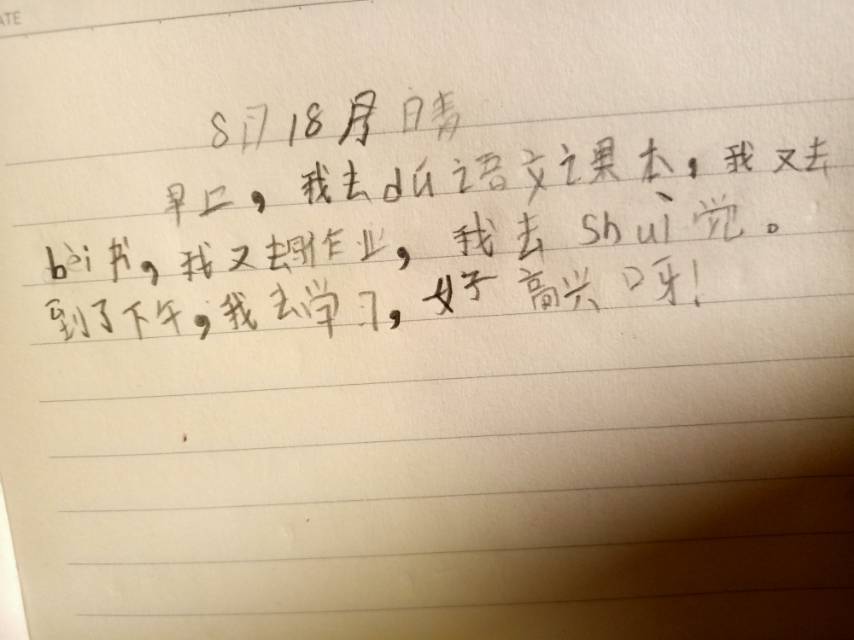 ATE
8月18月 晴
早上，我去dú语文课本，我又去
bèi书，我又去作业，我去shuì觉。
到了下午，我去学习，好高兴呀！